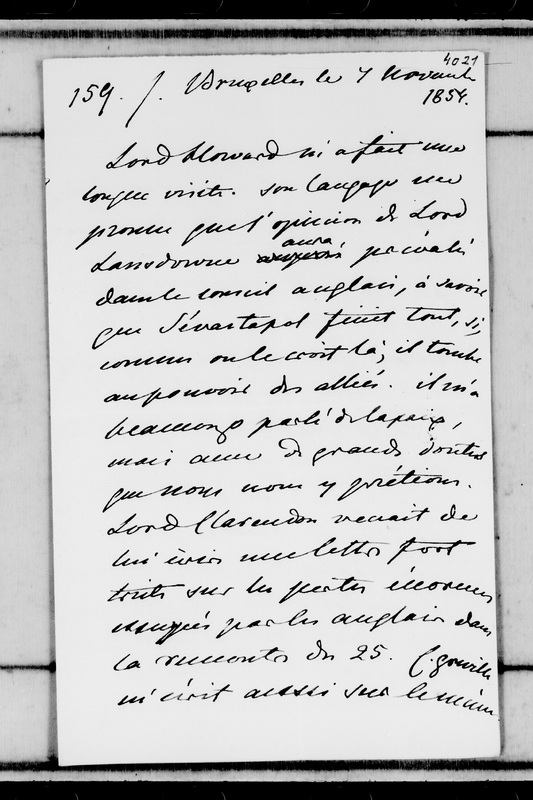 4021
159. /. Bruxelles le 7 Novembre
1854.
Lord Howard m'a fait une
longue visite. Son langage me
prouve que l'opinion de Lord
Lansdowne aura prévalu
dans le conseil anglais, à savoir
que Sévastopol finit tout, si,
comme on le croit là, il tombe
au pouvoir des alliés. il m'a
beaucoup parlé de la paix,
mais avec de grands doutes
que nous nous y prêtions.
Lord Clarendon venait de
lui écrire une lettre fort
triste sur les pertes énormes
essuyées par les anglais dans
la rencontre du 25. C. Greville
m'écrit aussi sur le même